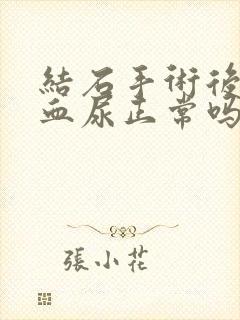 結石手術後
血尿正常吗
張小花